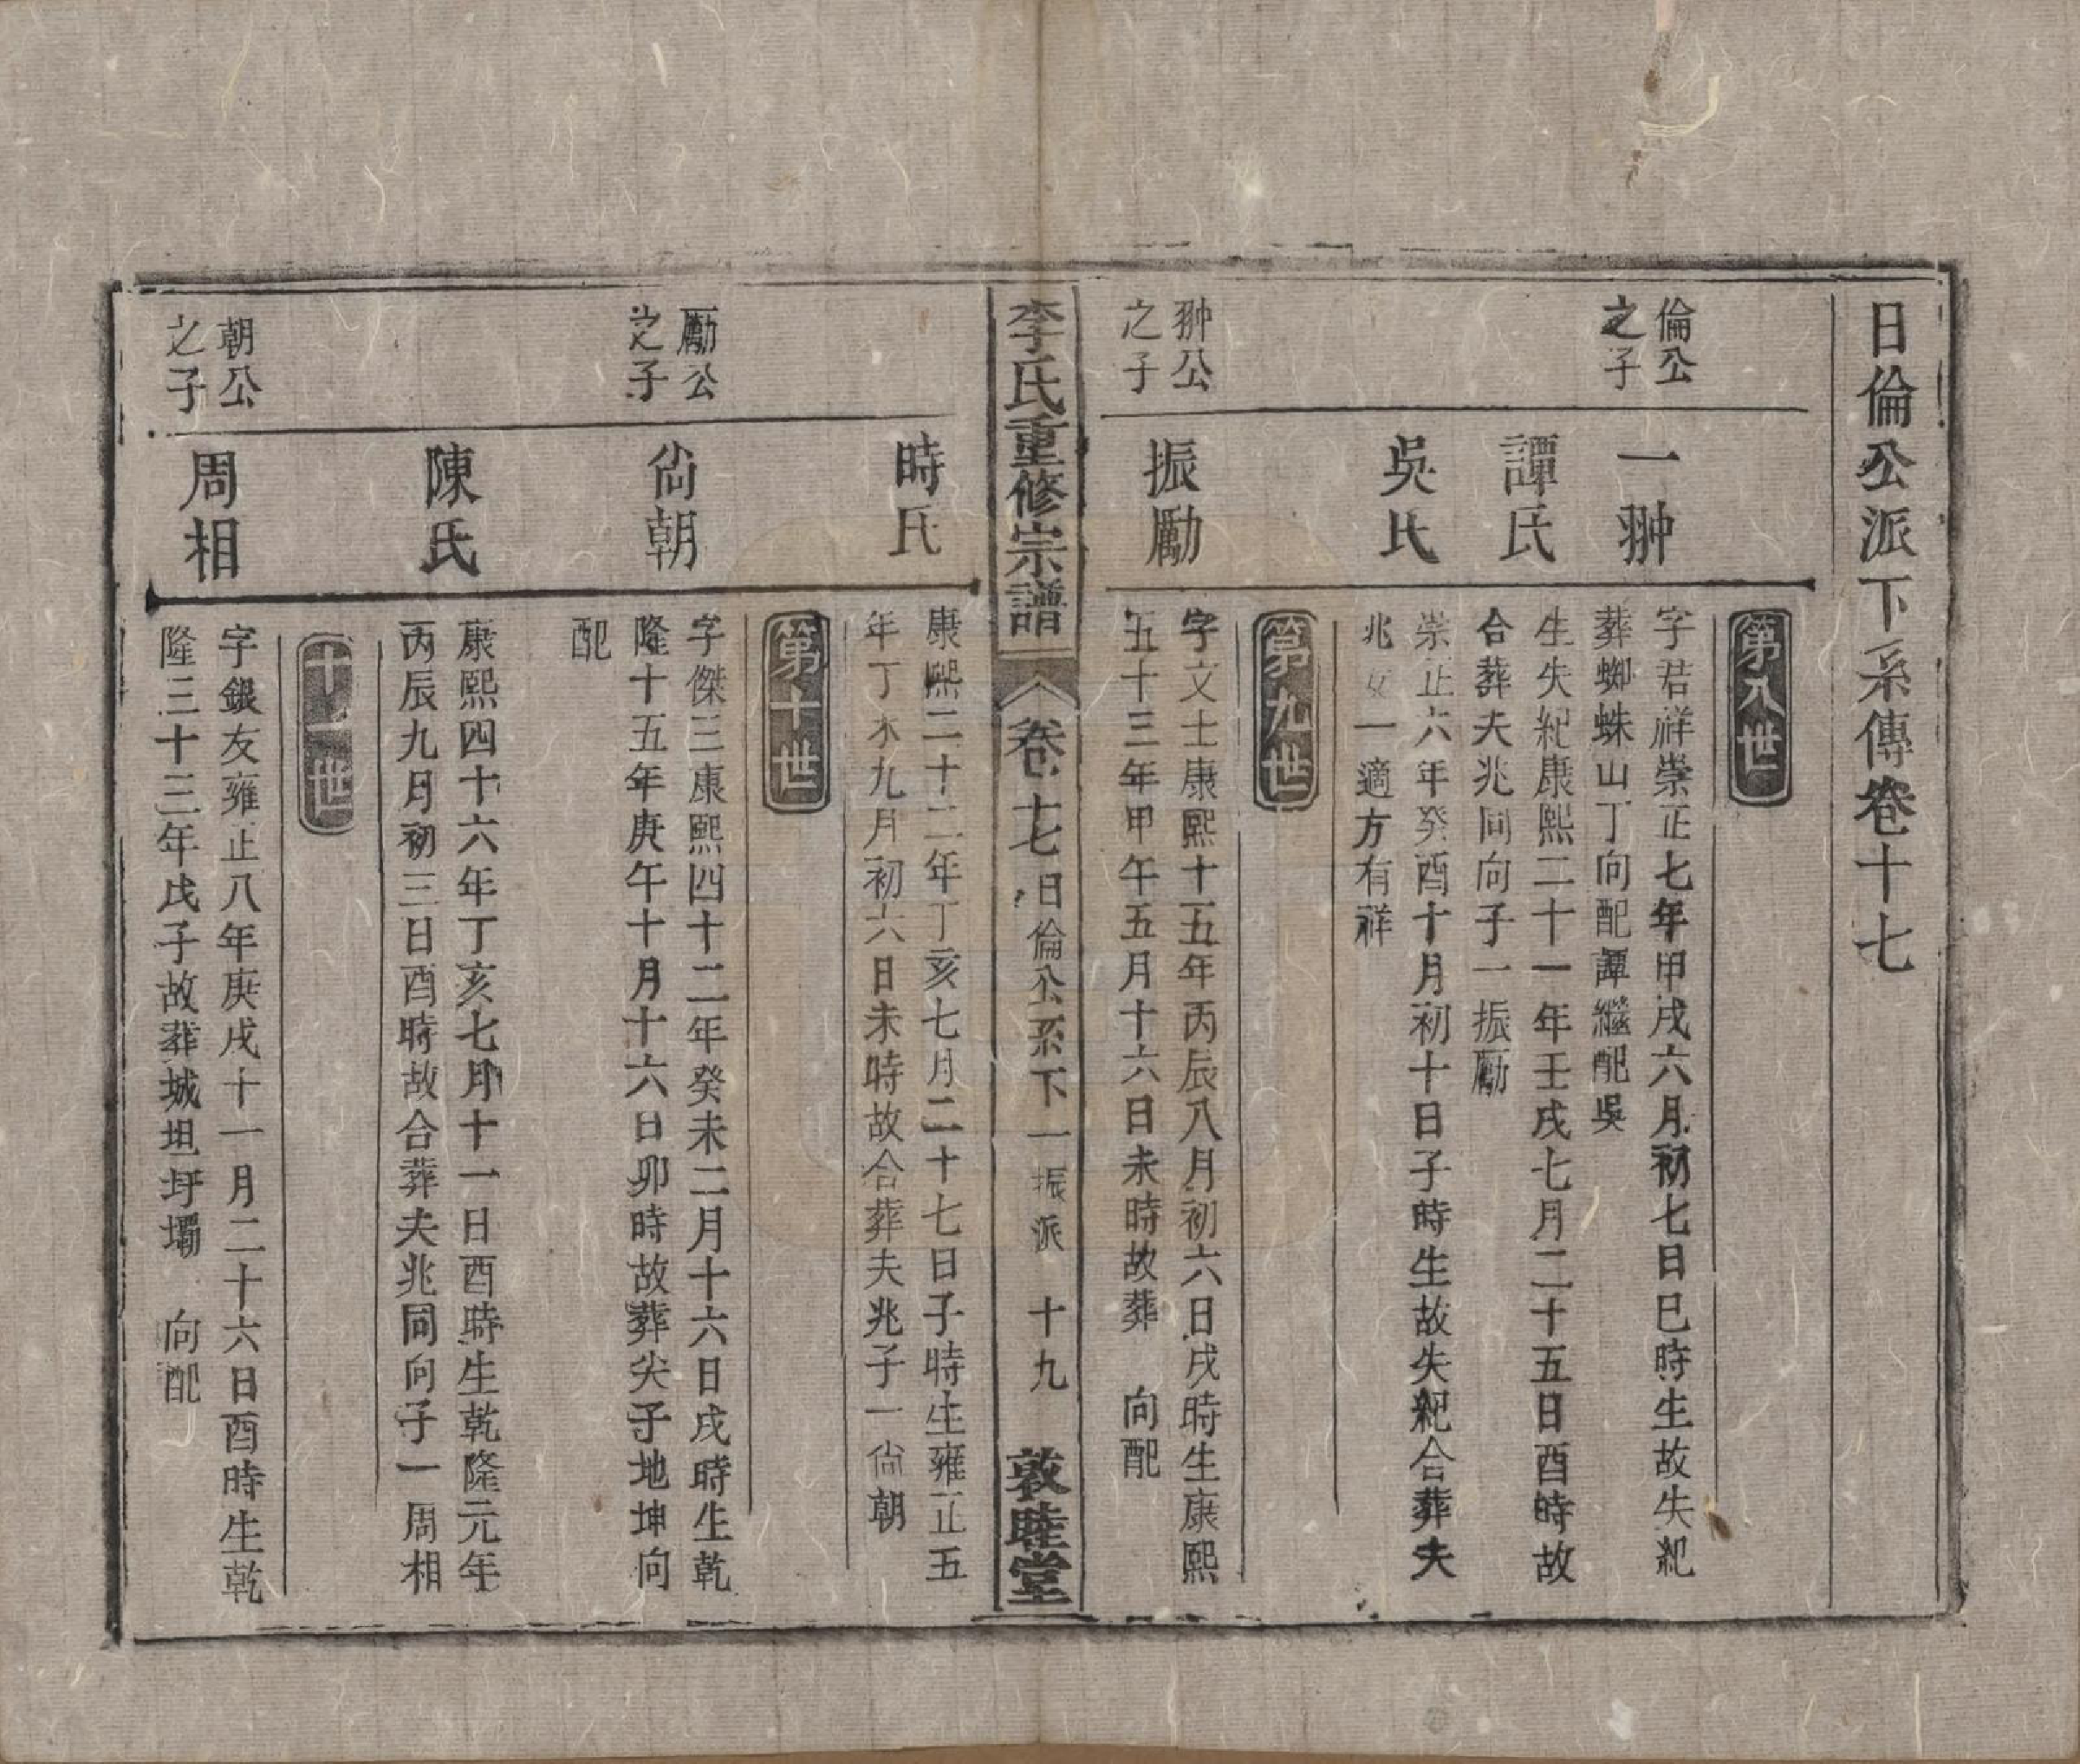 日倫公派下系傳卷十七
第八世
倫公
之子
一翀
字君祥崇正七年甲戌六月初七日巳時生故失紀
葬蜘蛛山丁向配譚繼配吳
譚氏
生失紀康熙二十一年壬戌七月二十五日酉時故
合葬夫兆同向子一振勵
吳氏
崇正六年癸酉十月初十日子時生故失紀合葬夫
兆女一適方有祥
第九世
翀公
之子
振勵
字文士康熙十五年丙辰八月初六日戌時生康熙
五十三年甲午五月十六日未時故葬　向配
李氏重修宗譜 卷十七 日倫公系下一振派 十九 敦睦堂
時氏
康熙二十二年丁亥七月二十七日子時生雍正五
年丁未九月初六日未時故合葬夫兆子一尙朝
第十世
勵公
之子
尙朝
字傑三康熙四十二年癸未二月十六日戌時生乾
隆十五年庚午十月十六日卯時故葬尖子地坤向
配
陳氏
康熙四十六年丁亥七月十一日酉時生乾隆元年
丙辰九月初三日酉時故合葬夫兆同向子一周相
十一世
朝公
之子
周相
字銀友雍正八年庚戌十一月二十六日酉時生乾
隆三十三年戊子故葬城坦圩壩　向配